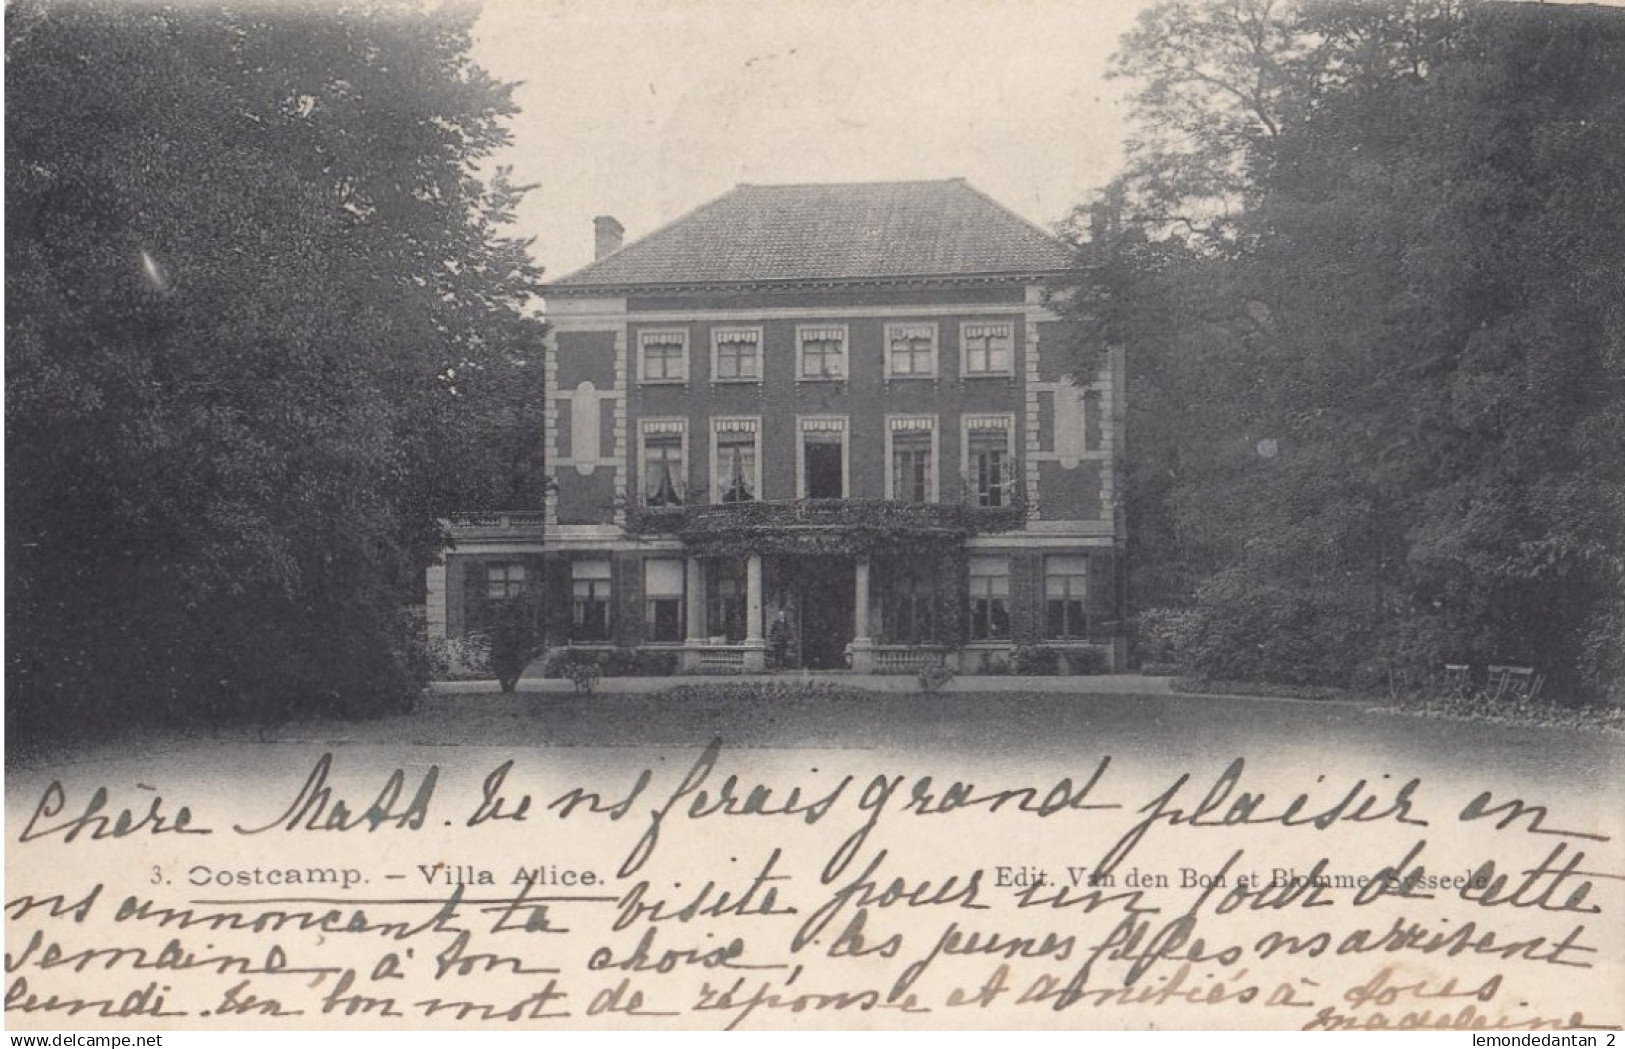 Chère Math. Tu ns ferais grand plaisir en
3. Oostcamp. – Villa Alice.
Edit. Van den Bon et Blomme, Sysseele
ns annonçant ta visite pour un jour de cette
semaine, à ton choix, les jeunes filles ns arrivent
lundi. Un bon mot de réponse et amitiés à tous.
Madeleine
www.delcampe.net
lemondedantan 2